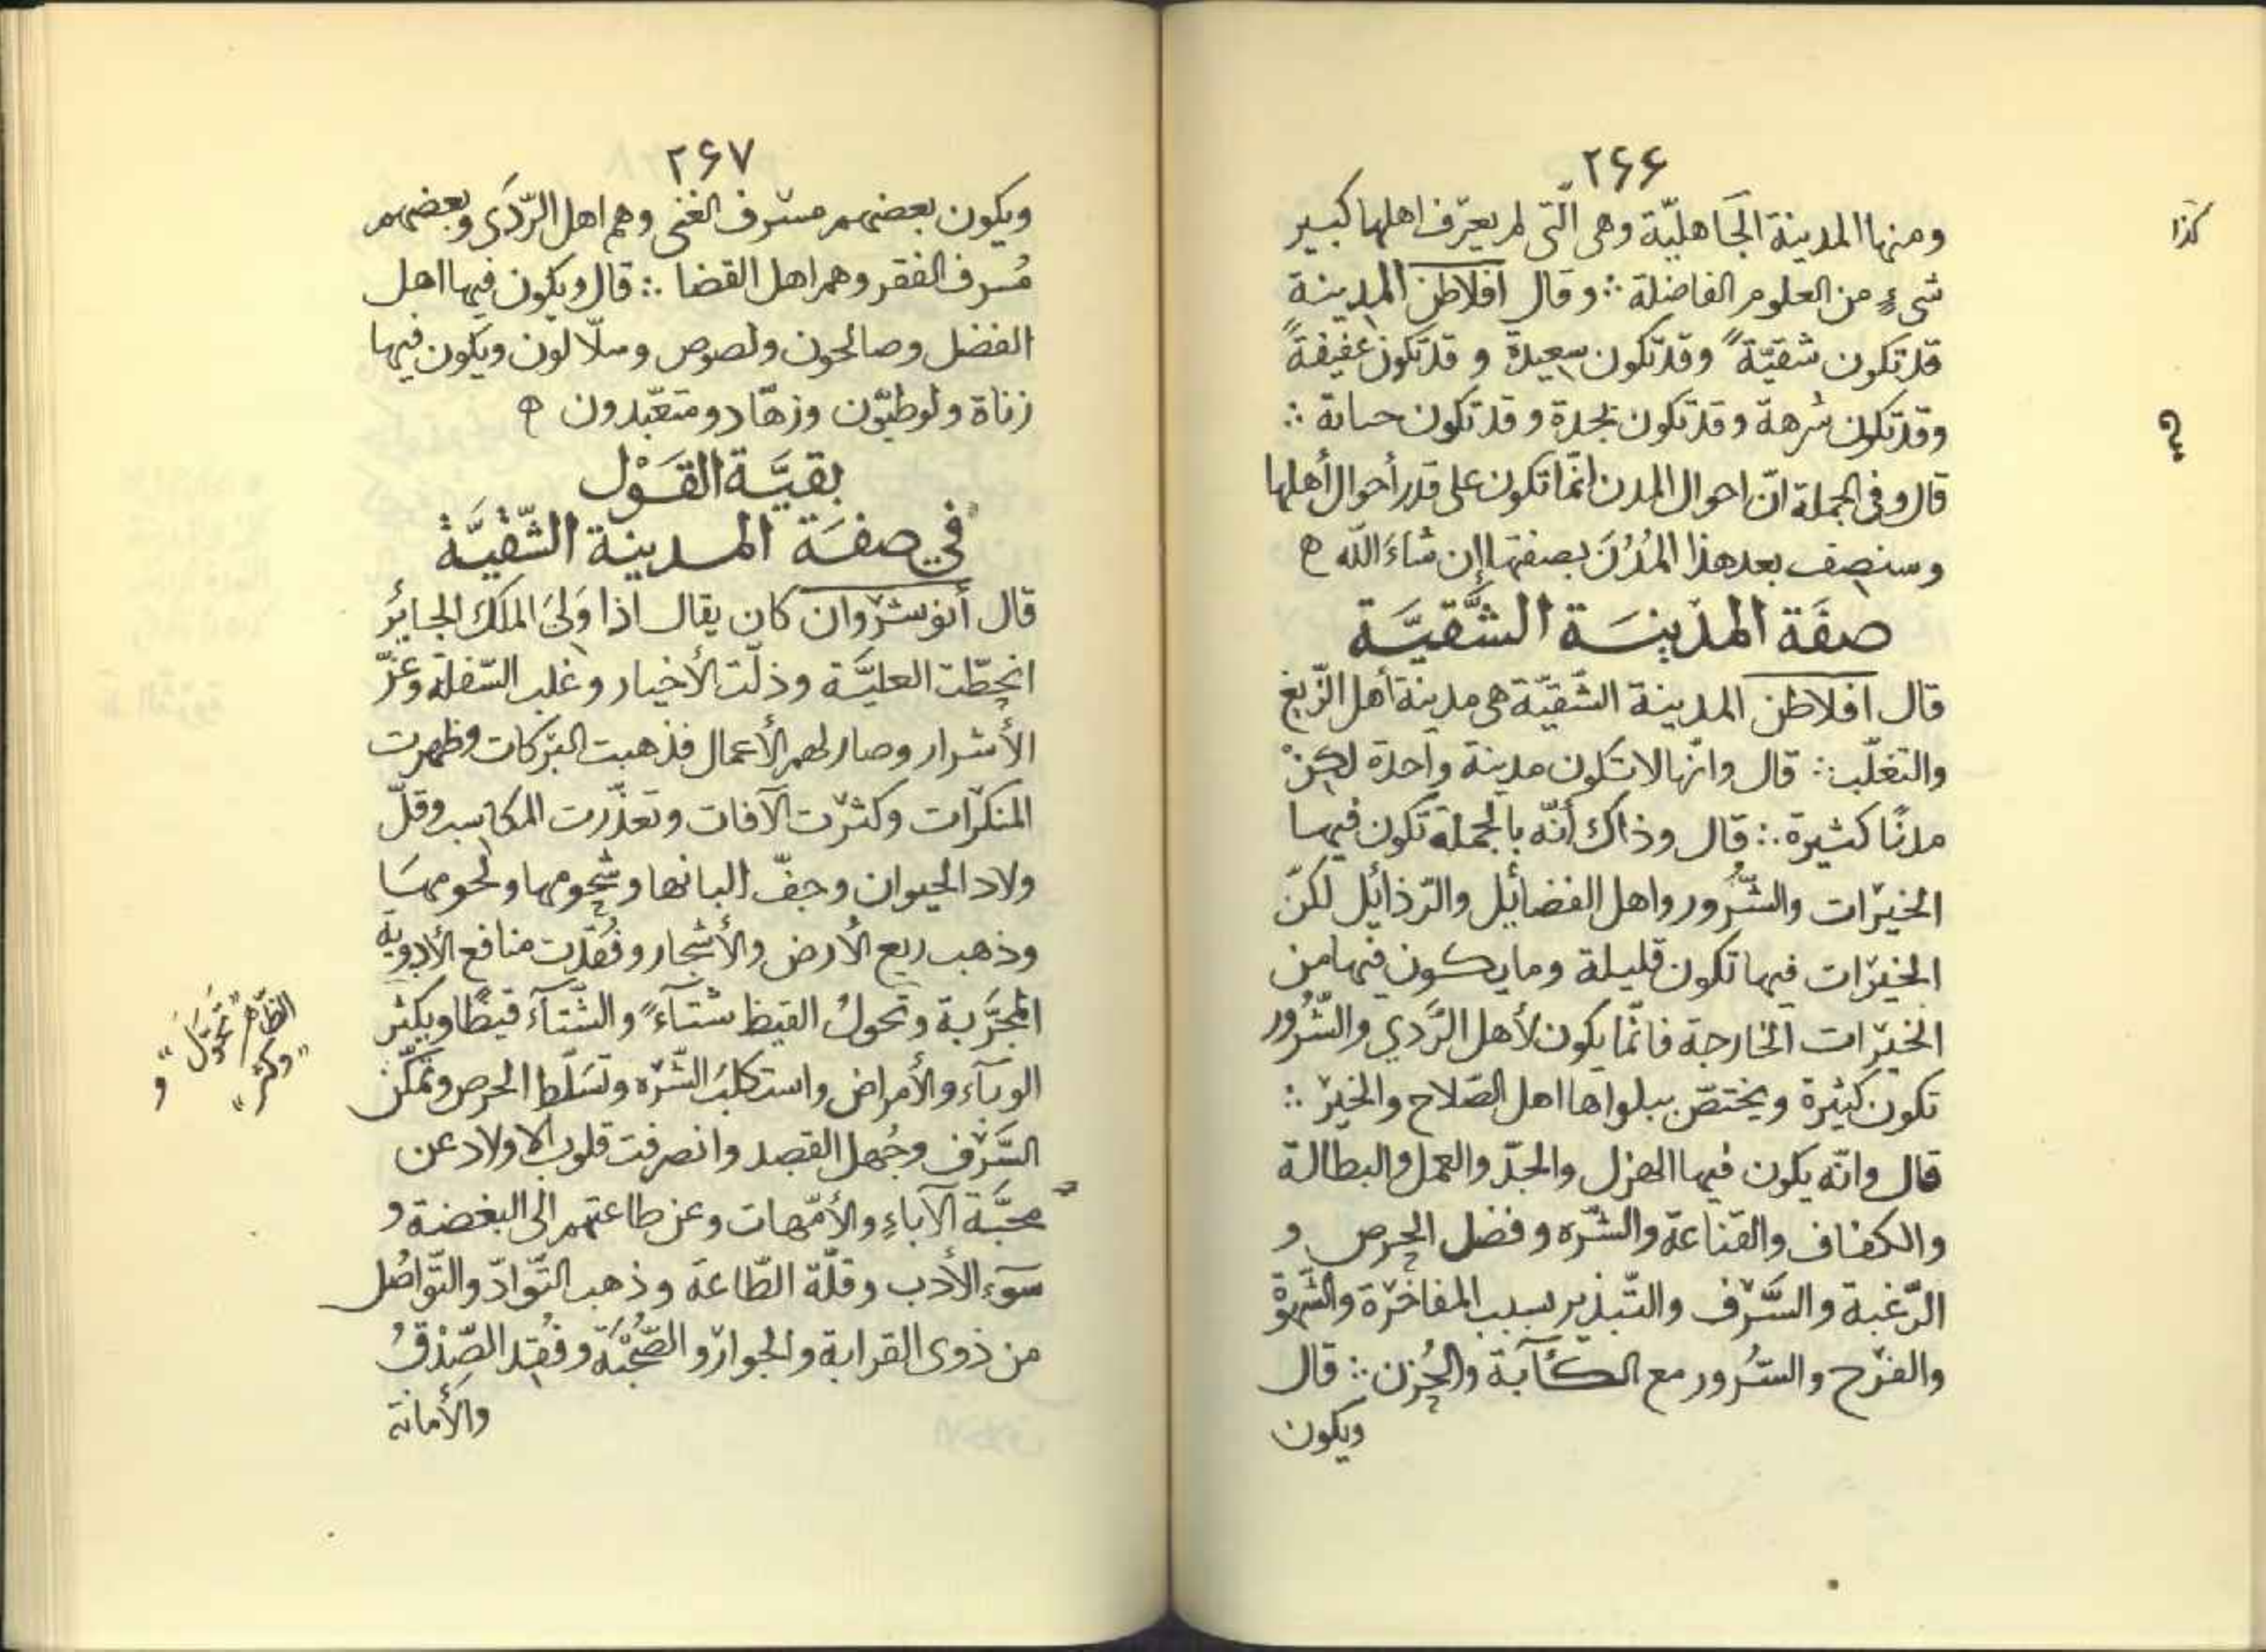 ٢۶۶
ومنها المدينة الجَاهليّة وهى الّتى لم يعرّف اهلها كبير
كذا
شىءٍ من العلوم الفاضلة ∴ وقال افلاطن المدينة
قد تكون شقيّةً وقد تكون سعيدة و قد تكون عفيفةً
وقد تكون شرهة وقد تكون نجدة و قد تكون حسابة ∴
قال وفى الجملة انّ احوال المدن انّما تكون على قدر أحوال أهلها
وسنصف بعد هذا المُدُنَ بصفتها إن شاءَ اللّه ه
صفَة المدينَة الشَّقيَّة
قال افلاطن المدينة الشّقيّة هى مدينة أهل الزّيغ
والتغلّب ∴ قال وانّها لا تكون مدينة واحدة لكنْ
مدنًا كثيرة ∴ قال وذاك أنّه بالجملة تكون فيها
الخيرات والشُّرور واهل الفضائل والرّذائل لكنّ
الخيرات فيها تكون قليلة وما يكون فيها من
الخيرات الخارجة فانّما يكون لأهل الرَّدي والشُّرور
تكون كثيرة ويختصّ ببلواها اهل الصّلاح والخير ∴
قال وانّه يكون فيها الهزل والجدّ والعمل والبطالة
والكفاف والقناعة والشّره وفضل الحرص و
الرّغبة والسَّرف والتّبذير بسبب المفاخرة والشّهوة
والفرح والسُّرور مع الكآبة والحُزن ∴ قال
ويكون
٢۶٧
ويكون بعضهم مسرف الغنى وهم اهل الرّدَى وبعضهم
مُسرف الفقر وهم اهل القضا ∴ قال ويكون فيها اهل
الفضل وصالحون ولصوص وسلّالون ويكون فيها
زناة ولوطيّون وزهّاد ومتعّبدون ه
بقيَّة القَوْل
في صفَة المدينة الشّقيَّة
قال أنوشروان كان يقال اذا وَلىَ الملك الجائر
انحطّت العليَّة وذلّت الأخيار وغلب السّفلة وعَزّ
الأشرار وصار لهم الأعمال فذهبت البركات وظهرت
المنكرات وكثرت الآفات وتعذّرت المكاسب وقلّ
ولاد الحيوان وجفّ البانها وشحومها ولحومهَا
وذهب ريع الأرض والأشجار وفُقدت منافع الأدوية
المجرَّبة وتحولُ القيظ شتآءً والشّتآءَ قيظًا ويكثر
الظّاهر "تحوّلَ" و "وكثر"
الوبآء والأمراض واستكلبَ الشّره وتَسَلّط الحرص وتمَكّن
السَّرَف وجُهل القصد وانصرفت قلوب الاولاد عن
محبَّة الآباءِ والأمّهات وعن طاعتهم الى البغضة و
سوء الأدب وقلّة الطّاعة وذهب التّوادّ والتّواصُل
من ذوى القرابة والجوار والصُّحبَة وفُقِد الصِّدْقُ
والأمانة